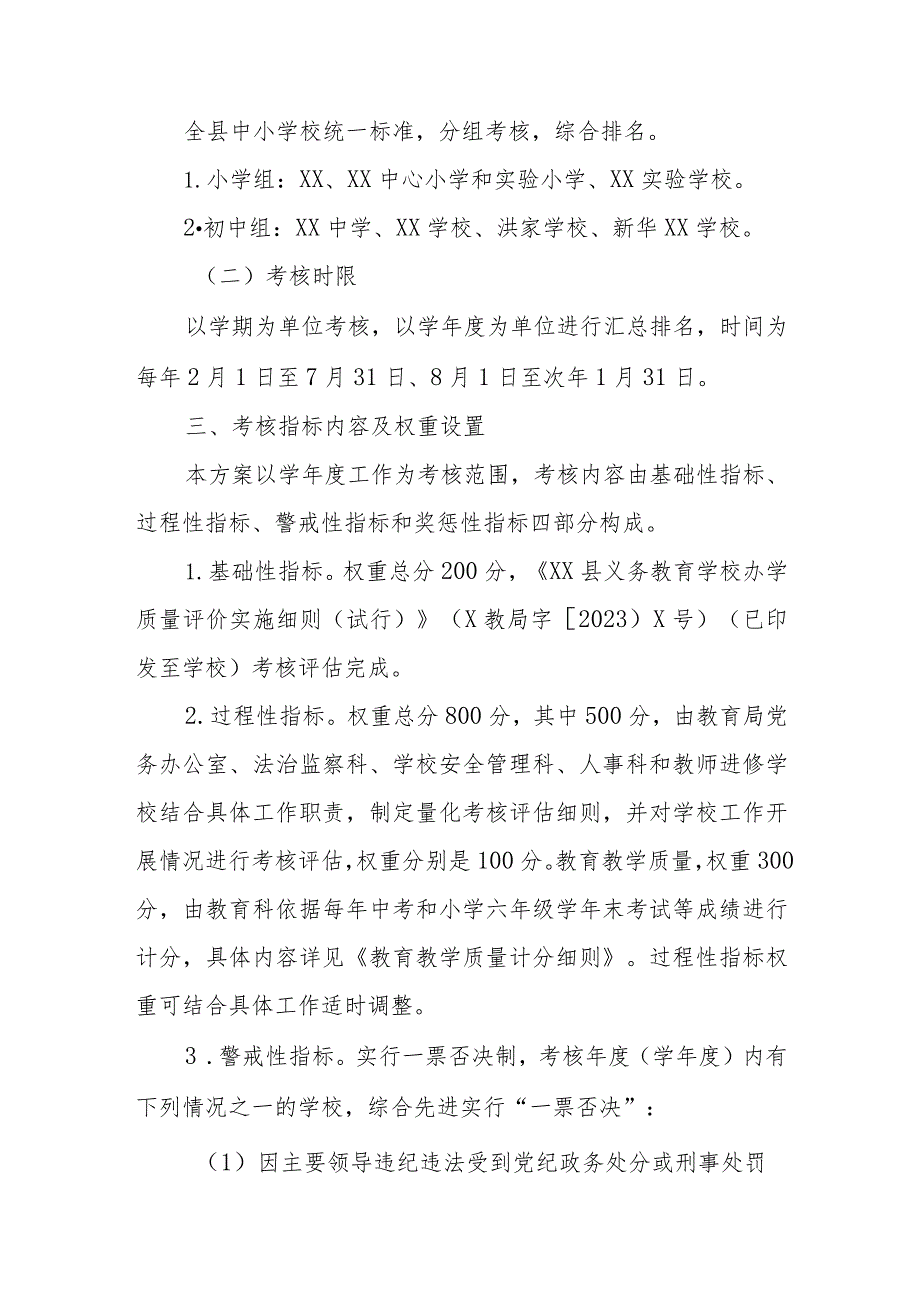 全县中小学校统一标准，分组考核，综合排名。
1.小学组：XX、XX中心小学和实验小学、XX实验学校。
2•初中组：XX中学、XX学校、洪家学校、新华XX学校。
（二）考核时限
以学期为单位考核，以学年度为单位进行汇总排名，时间为
每年2月1日至7月31日、8月1日至次年1月31日。
三、考核指标内容及权重设置
本方案以学年度工作为考核范围，考核内容由基础性指标、
过程性指标、警戒性指标和奖惩性指标四部分构成。
1.基础性指标。权重总分200分，《XX县义务教育学校办学
质量评价实施细则（试行）》（X教局字［2023）X号）（已印
发至学校）考核评估完成。
2.过程性指标。权重总分800分，其中500分，由教育局党
务办公室、法治监察科、学校安全管理科、人事科和教师进修学
校结合具体工作职责，制定量化考核评估细则，并对学校工作开
展情况进行考核评估,权重分别是100分。教育教学质量,权重300
分，由教育科依据每年中考和小学六年级学年末考试等成绩进行
计分，具体内容详见《教育教学质量计分细则》。过程性指标权
重可结合具体工作适时调整。
3.警戒性指标。实行一票否决制，考核年度（学年度）内有
下列情况之一的学校，综合先进实行“一票否决”：
（1）因主要领导违纪违法受到党纪政务处分或刑事处罚